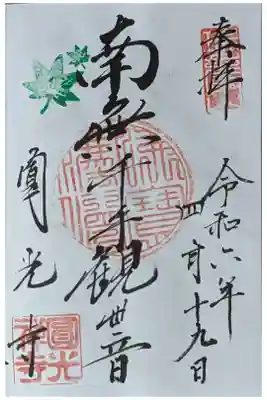 奉拝
令和六年
四月十九日
南無千手観世音
圓光寺
圓光寺